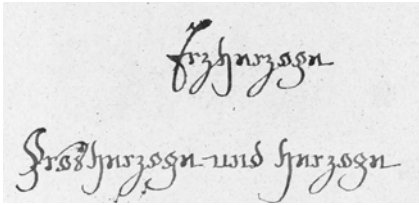 Erzherzoge
Grosherzoge und herzoge